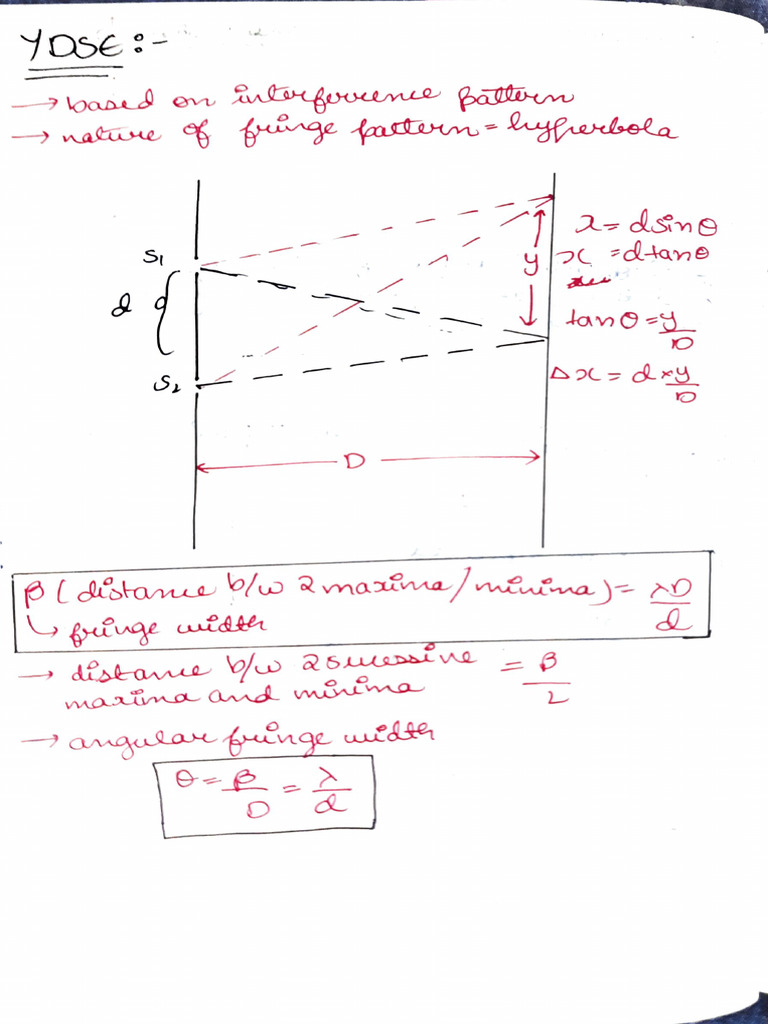 YDSE :-
→ based on interference pattern
→ nature of fringe pattern = hyperbola
x = dsinθ
S1
y
x = dtanθ
d
tanθ = y/D
S2
Δx = d × y/D
D
β (distance b/w 2 maxima/minima) = λD/d
↳ fringe width
→ distance b/w 2 sucessive = β/2
maxima and minima
→ angular fringe width
θ = β/D = λ/d